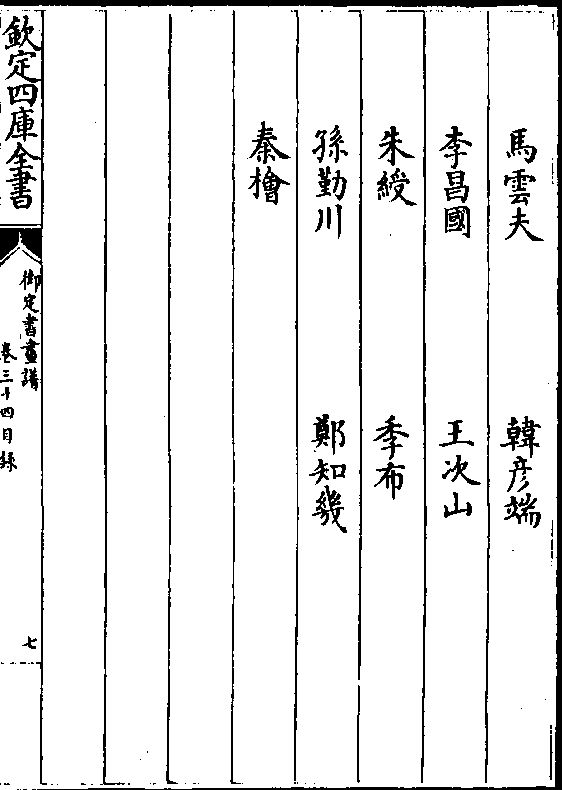 馬雲夫　韓彦端
李昌國　王次山
朱綬　季布
孫勤川　鄭知㡬
秦檜
欽定四庫全書
御定書畫譜
卷三十四目録
七